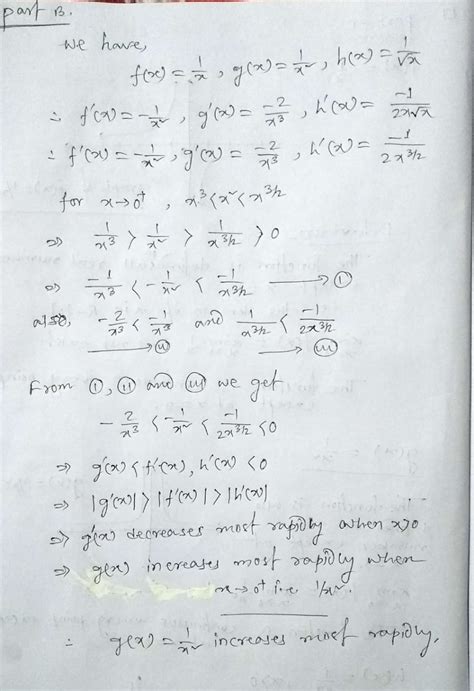 part B.
we have,
f(x) = 1/x, g(x) = 1/x², h(x) = 1/√x
∴ f'(x) = -1/x², g'(x) = -2/x³, h'(x) = -1/2x√x
∴ f'(x) = -1/x², g'(x) = -2/x³, h'(x) = -1/2x^3/2
for x→0⁺, x³ < x² < x^3/2
⇒ 1/x³ > 1/x² > 1/x^3/2 > 0
⇒ -1/x³ < -1/x² < -1/x^3/2 → (i)
also, -2/x³ < -1/x³ and -1/x^3/2 < -1/2x^3/2
→ (ii) → (iii)
From (i), (ii) and (iii) we get
-2/x³ < -1/x² < -1/2x^3/2 < 0
⇒ g'(x) < f'(x), h'(x) < 0
⇒ |g'(x)| > |f'(x)| > |h'(x)|
⇒ g'(x) decreases most rapidly when x>0
⇒ g(x) increases most rapidly when
x→0⁺ i.e. 1/x².
∴ g(x) = 1/x² increases most rapidly.